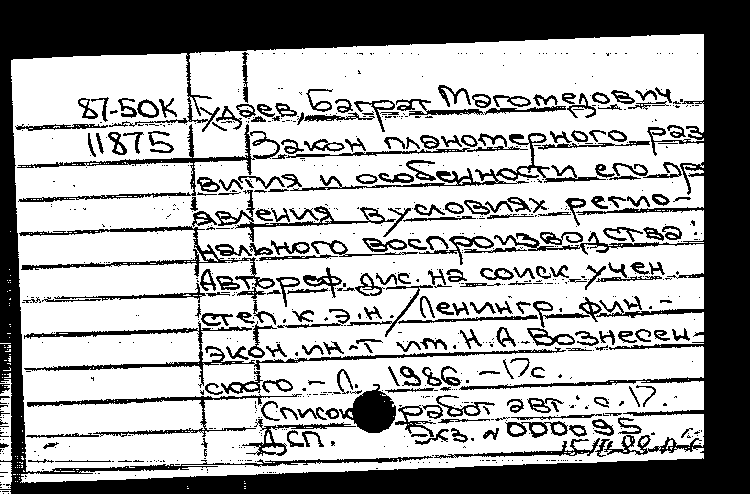 87-50К Гудаев, Баграт Магомедович
11875 Закон планомерного раз
вития и особенности его про
явления в условиях регио-
нального воспроизводства:
Автореф. дис. на соиск. учен.
степ. к.э.н. / Ленингр. фин.-
экон. ин-т им. Н.А. Вознесен-
ского. - Л., 1986. - 17с.
Список работ авт.: с. 17.
ДСП. Экз. N 000095.
15/III.88